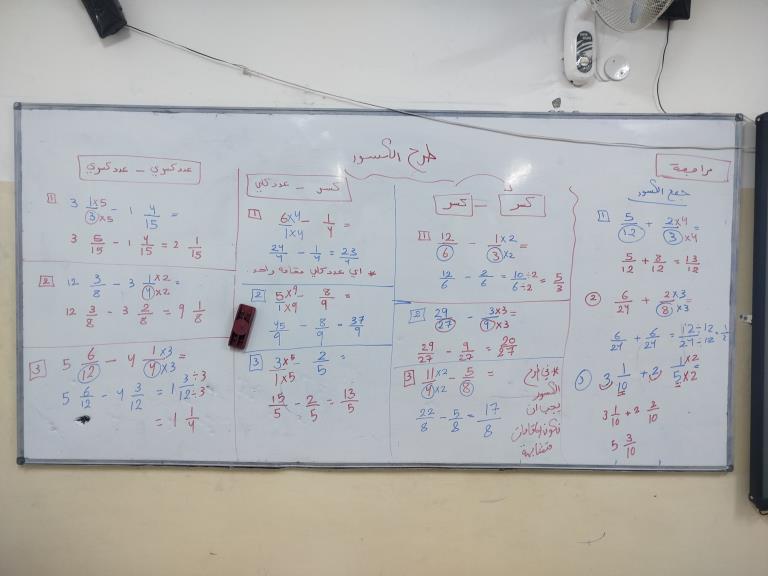 طرح الكسور
مراجعة
جمع الكسور
1 5/12 + 2×4/3×4 =
5/12 + 8/12 = 13/12
2 6/24 + 2×3/8×3 =
6/24 + 6/24 = 12÷12/24÷12 = 1/2
3 1/10 + 2 1×2/5×2 =
3 1/10 + 2 2/10
5 3/10
كسر – كسر
1 12/6 – 1×2/3×2 =
12/6 – 2/6 = 10÷2/6÷2 = 5/3
2 29/27 – 3×3/9×3 =
29/27 – 9/27 = 20/27
3 11×2/4×2 – 5/8 =
22/8 – 5/8 = 17/8
الكسور
يجب ان
تكون المقامات
متشابهة
كسر – عدد كلي
1 6×4/1×4 – 1/4 =
24/4 – 1/4 = 23/4
* اي عدد كلي مقامه واحد.
2 5×9/1×9 – 8/9 =
45/9 – 8/9 = 37/9
3 3×5/1×5 – 2/5 =
15/5 – 2/5 = 13/5
عدد كسري – عدد كسري
1 3 1×5/3×5 – 1 4/15 =
3 5/15 – 1 4/15 = 2 1/15
2 12 3/8 – 3 1×2/4×2 =
12 3/8 – 3 2/8 = 9 1/8
3 5 6/12 – 4 1×3/4×3 =
5 6/12 – 4 3/12 = 1 3÷3/12÷3
= 1 1/4